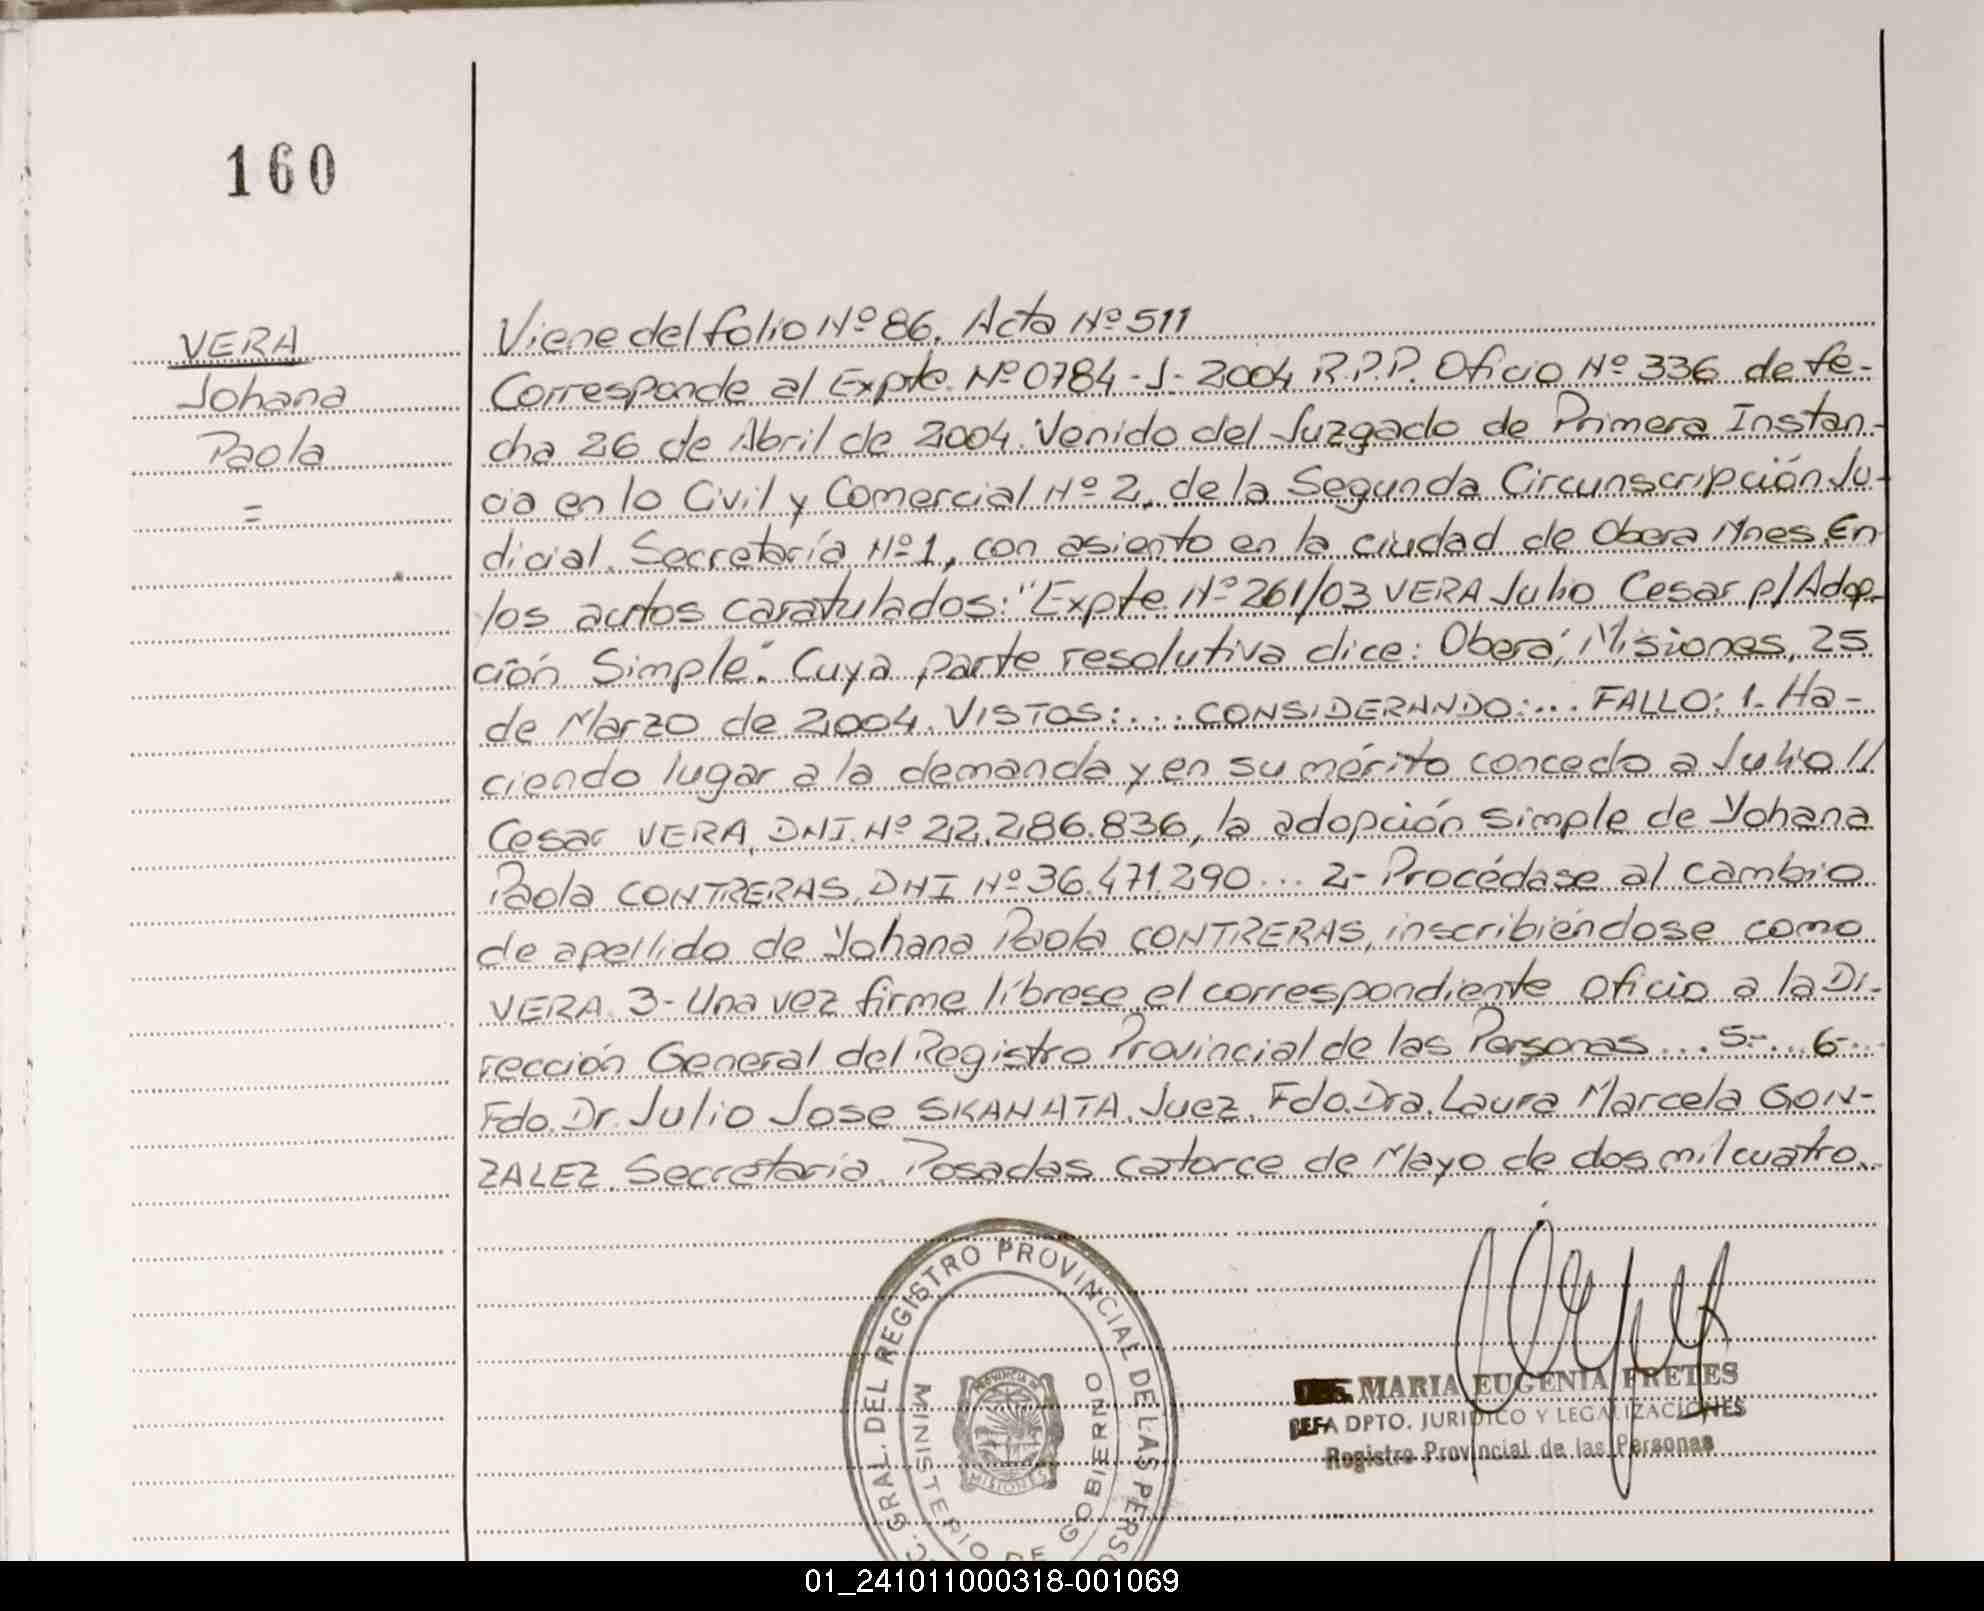 160
VERA
Johana
Paola
=
Viene del folio Nº 86. Acta Nº 511
Corresponde al Expte. Nº 0784-J-2004 R.P.P. Oficio Nº 336 de fe-
cha 26 de Abril de 2004. Venido del Juzgado de Primera Instan-
cia en lo Civil y Comercial Nº 2, de la Segunda Circunscripción Ju-
dicial. Secretaría Nº 1, con asiento en la ciudad de Obera Mnes. En
los autos caratulados: "Expte. Nº 261/03 VERA Julio Cesar p/Adop-
ción Simple". Cuya parte resolutiva dice: Oberá, Misiones, 25
de Marzo de 2004. VISTOS:... CONSIDERANDO:... FALLO: 1. Ha-
ciendo lugar a la demanda y en su mérito concedo a Julio //
Cesar VERA, DNI. Nº 22.286.836, la adopción simple de Yohana
Paola CONTRERAS, DNI Nº 36.471.290... 2- Procédase al cambio
de apellido de Yohana Paola CONTRERAS, inscribiéndose como
VERA. 3- Una vez firme líbrese el correspondiente oficio a la Di-
rección General del Registro Provincial de las Personas... 5-... 6-...
Fdo. Dr. Julio Jose SKANATA. Juez. Fdo. Dra. Laura Marcela GON-
ZALEZ. Secretaria. Posadas catorce de Mayo de dos mil cuatro.
GRAL. DEL REGISTRO PROVINCIAL DE LAS PERSO
MINISTERIO DE GOBIERNO
PROVINCIA DE
MISIONES
MARIA EUGENIA FRETES
JEFA DPTO. JURIDICO Y LEGALIZACIONES
Registro Provincial de las Personas
01_241011000318-001069